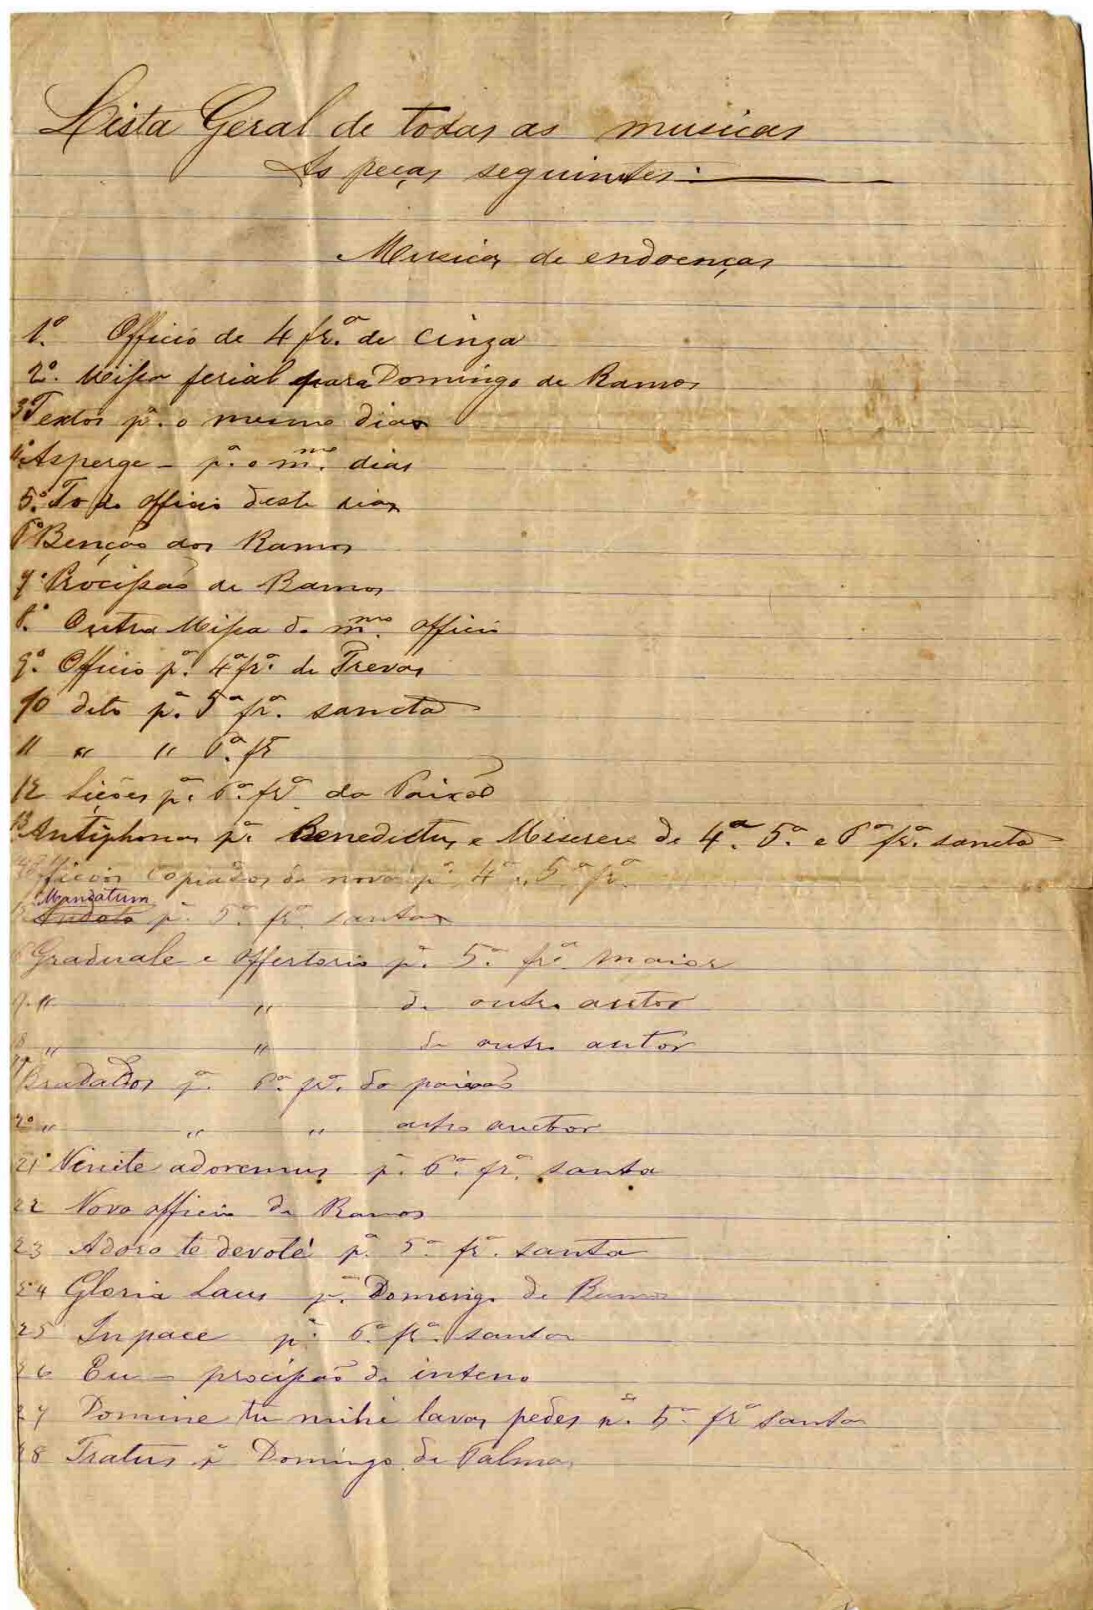 Lista Geral de todas as musicas
As peças seguintes:
Musicas de endoenças
1º. Officio de 4 frª. de Cinza
2º. Missa ferial para Domingo de Ramos
3º Textos pª. o mesmo dia
4º Asperge – pª. o mmo. dia
5º. To do officio deste dia
6º Benção dos Ramos
7º Procissão de Ramos
8º. Outra Missa do mmo. officio
9º. Officio pª. 4ª frª. de Trevas
10 dito pª. 5ª frª. sancta
11 " " 6ª. frª
12 Lições pª. 6ª. frª da Paixão
13 Antiphonas pª. Benedictus e Miserere de 4ª. 5ª. e 6ª frª. sancta
14 Officios copiados de novo pª. 4ª e 5ª frª.
Mandatum
15 pª. 5ª. frª. santa
16 Graduale e Offertorio pª. 5ª. frª. maior
17 " " de outro autor
18 " " de outro autor
19 Bradados pª. 6ª. frª. da paixão
20 " " " outro auctor
21 Venite adoremus pª. 6ª. frª. santa
22 Novo officio de Ramos
23 Adoro te devote pª. 5ª frª. santa
24 Gloria Laus pª. Domingo de Ramos
25 In pace pª. 6ª. frª. santa
26 Eu – procissão do intero
27 Domine tu mihi lavas pedes pª. 5ª frª santa
28 Tratus pª Domingo de Palmas